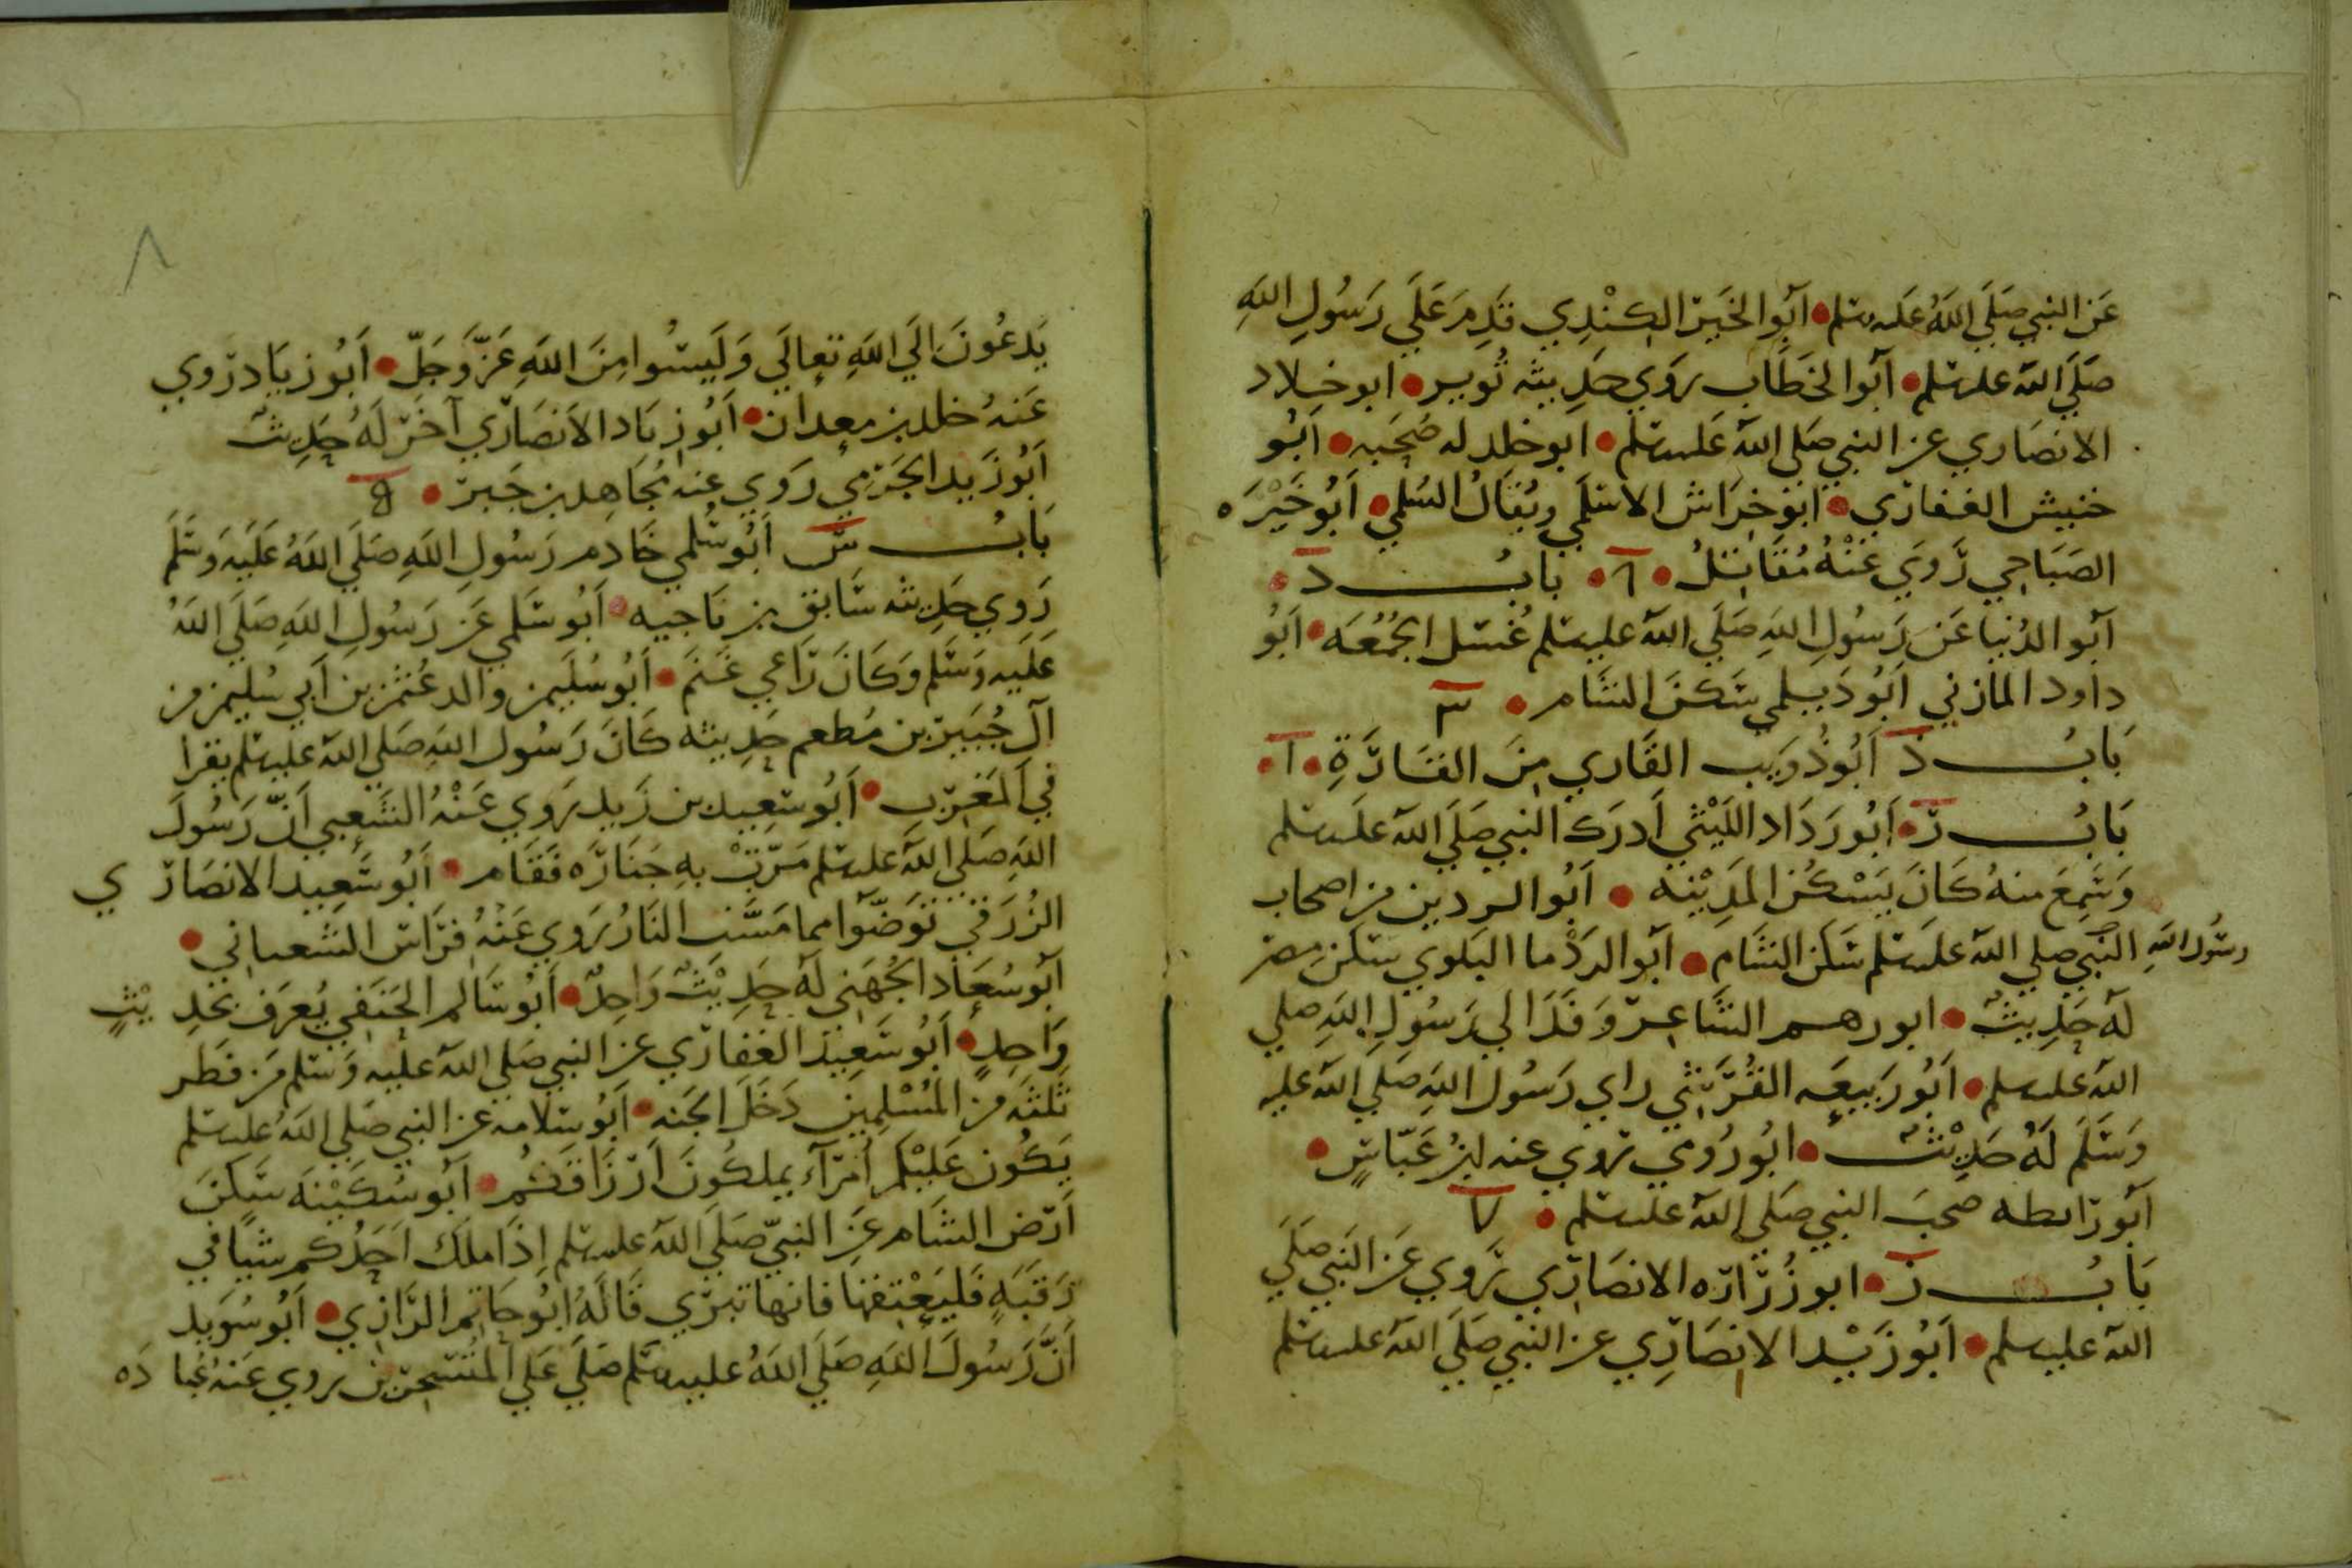 عَن النبي صَلَي اللهُ عليه وسلم • أبو الخَيْر الكِنْدِي قَدِمَ عَلَي رَسُولِ اللهِ
صَلَي الله عليه وسلم • أبو الخَطَّاب رَوَي حَدِيثه ثُوير • ابو خلاد
الانصَاري عن النبي صَلي الله عَليه وسلم • ابو خلد له صُحبَه • أبُو
خنيش الغفاري • أبو خِرَاش الاسْلَمي ويُقَالُ السُلمي • أَبُو خَيْرَه
الصَبَاحي رَوَي عَنْهُ مُقَاتِلُ • ٦ • بابُ د •
أبو الدُنيا عَن رَسُولِ اللهِ صَلَي الله عليه وسلم غُسْل الجُمُعَه • أَبُو
داود المازني أَبُو دَيلمي سَكَنَ الشَام • ٣
بَابُ ذ أَبُو ذُوَيب القَاري مِنَ القَارَةِ • ١ •
بَابُ ر • أبُو رَدَاد اللَيْثي أَدرَك النبي صَلَي الله عَليه وسلم
وَسَمِعَ منهُ كَانَ يَسْكُن المَدِيْنه • أَبُو الردين من اصحاب
رسُول اللهِ النَبي صلي الله عليه وسلم سَكَن الشَام • أبو الرَدْما البَلوي سَكَن مِصْر
لَهُ حَدِيثٌ • ابو رهم الشَاعِر وَفَدَ الي رَسُولِ اللهِ صلي
الله عليه وسلم • أَبُو رَبيعَه القُرَشي راي رَسُول اللهِ صَلي الله عليه
وَسَلَم لَهُ حَدِيْثٌ • ابُو رُومي روي عنه ابنُ عَبّاسٍ •
أبو رَابطه صحبَ النبي صَلي الله عليه وسلم • ٧
بَابُ ز • ابو زُرَارَه الانصَارِي رَوي عَن النَبي صَلَي
الله عليه وسلم • أَبُو زَيْد الانصَارِي عن النبي صَلَي الله عليه وسلم
٨
يَدعُونَ الَي اللهِ تعالَي وَلَيسُوا مِنَ اللهِ عَزَّ وَجَلّ • أَبُو زيَاد رَوي
عَنهُ خلد بن معدان • أَبُو زيَاد الأَنصَارِي آخَر لَهُ حَدِيثٌ
أَبُو زَيد الجَرْمي رَوَي عنه مُجَاهِد بن جَبر •
بَابُ س أَبُو سُلمي خَادم رَسُولِ اللهِ صَلَي اللهُ عَلَيَه وَسَلَم
رَوي حَدِيثه سَابق بن نَاجيه • أَبُو سَلمي عَن رَسُولِ اللهِ صَلَي اللهُ
عَلَيه وَسَلَم وَكَانَ رَاعي غَنَم • أَبُو سُلَيمن والد عُثمن بن أَبي سُليمن من
آل جُبَير بن مُطعم حَدِيثه كَانَ رَسُول اللهِ صَلي الله عليه وسلم يقرا
في المَغرب • أَبُو سَعِيد بن زَيد رَوي عَنْهُ الشَعبي أَنّ رَسُولَ
اللهِ صَلي الله عليه وسلم مَرّتْ بهِ جنَازَه فَقَام • أَبُو سَعِيد الانصَاري
الزُرَقي تَوَضّوا مما مَسَّت النَارُ رَوي عَنْهُ فِرَاس الشَعباني •
أَبُو سُعَاد الجُهَني لَهُ حَدِيْثٌ وَاحِدٌ • أَبُو سَالم الحَنَفي يُعرَف بحَدِيْثٍ
وَاحِدٍ • أَبُو سَعِيد الغفارِي عن النبي صَلي الله عليه وَسَلم مَن فَطر
ثَلثَه من المُسْلِمِين دَخَلَ الجَنه • أَبُو سلامه عن النبي صَلي اللهُ عليه وسلم
يَكُون عَلَيْكم أُمَرآء يملكُونَ أَرْزَاقَكُم • أَبُو سُكَيْنَه سَكَنَ
أَرْض الشَام عَنِ النبيّ صَلَي الله عليه وسلم إِذَا مَلَك اَحَدُكم شيًا في
رَقَبَهٍ فَليَعْتِقها فانها تبرّي قَالَهُ أبُو حَاتِم الرَازي • أَبُو سُوَيد
أَنَّ رَسُولَ اللهِ صَلَي اللهُ عليه وسلم صَلَي عَلَي المُتَسَحِرِين روي عَنهُ عُبَادَه